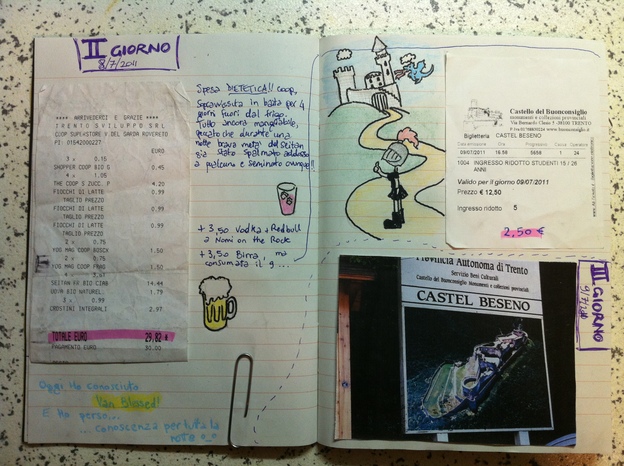 II GIORNO
8/7/2011
**** ARRIVEDERCI E GRAZIE ****
TRENTO SVILUPPO SRL
COOP SUPERSTORE V.DEL GARDA ROVERETO
PI: 01542000227
EURO
3 x 0.15
SHOPPER COOP BIO G 0.45
4 x 1.05
THE COOP S ZUCC. P 4.20
FIOCCHI DI LATTE 0.99
TAGLIO PREZZO
FIOCCHI DI LATTE 0.99
TAGLIO PREZZO
FIOCCHI DI LATTE 0.99
TAGLIO PREZZO
2 x 0.75
YOG MAG COOP 1.50
2 x 0.75
YOG MAG COOP FRAG 1.50
SEITAN 14.44
NATUREL. 1.79
3 x 0.99
CROSTINI INTEGRALI 2.97
TOTALE EURO 29,82
PAGAMENTO EURO 30.00
Spesa DIETETICA!! coop,
sopravvissuta in baita per 4
giorni fuori dal frigo.
Tutto ancora mangiabile,
peccato che durante una
notte brava metà del seitan
sia stato spalmato addosso
a qualcuno e seminato ovunque!!
+ 3,50 Vodka + Redbull
a Nomi on the Rock
+ 3,50 Birra, ma
consumata il 9...
Oggi Ho conosciuto
Van Blased!
E Ho perso...
... conoscenza per tutta la
notte
Castello del Buonconsiglio
monumenti e collezioni provinciali
Via Bernardo Clesio 5 -38100 TRENTO
www.buonconsiglio.it
Biglietteria CASTEL BESENO
Data emissione Ora Progressivo Cassa Operatore
09/07/2011 16.56 5058 1 24
1004 INGRESSO RIDOTTO STUDENTI 15 / 26
ANNI
Valido per il giorno 09/07/2011
Prezzo € 12,50
Ingresso ridotto 5
2,50 €
III GIORNO
9/7/2011
Provincia Autonoma di Trento
Servizio Beni Culturali
Castello del Buonconsiglio Monumenti e collezioni provinciali
CASTEL BESENO